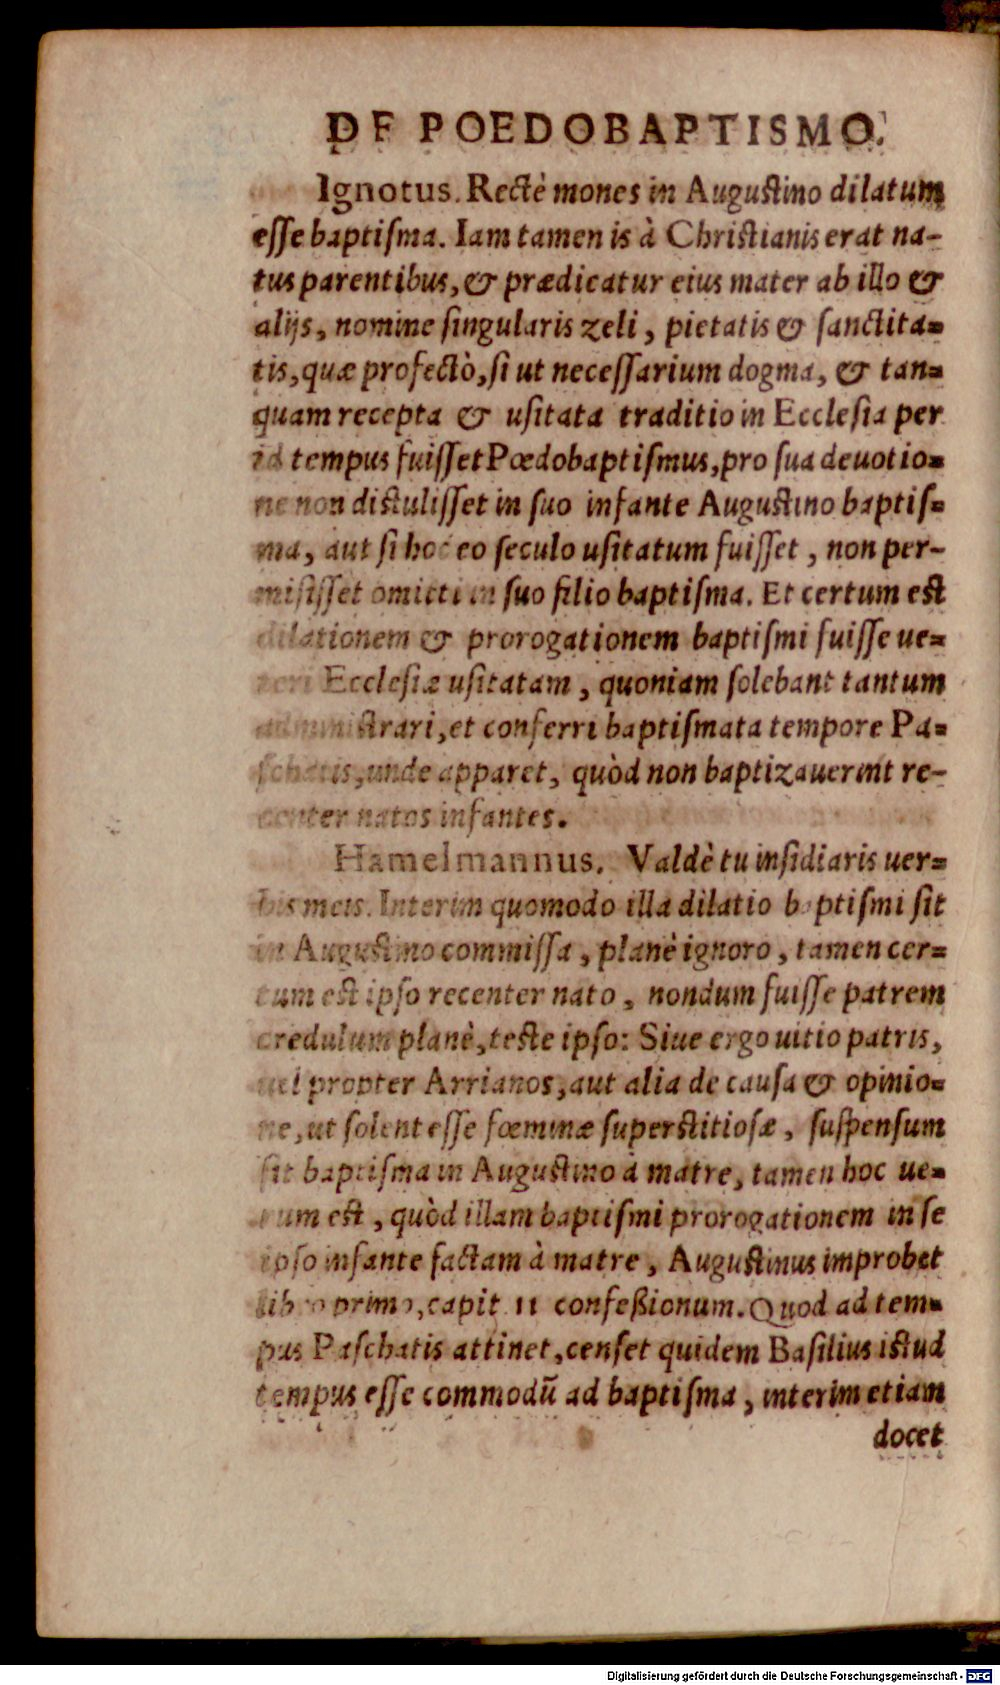 DE POEDOBAPTISMO.
Ignotus. Rectè mones in Augustino dilatum
esse baptisma. Iam tamen is à Christianis erat na-
tus parentibus, & prædicatur eius mater ab illo &
alijs, nomine singularis zeli, pietatis & sanctita-
tis, quæ profectò, si ut necessarium dogma, & tan-
quam recepta & usitata traditio in Ecclesia per
id tempus fuisset Pœdobaptismus, pro sua deuotio-
ne non distulisset in suo infante Augustino baptis-
ma, aut si hoc eo seculo usitatum fuisset, non per-
misisset omitti in suo filio baptisma. Et certum est
dilationem & prorogationem baptismi fuisse ue-
teri Ecclesiæ usitatam, quoniam solebant tantum
administrari, et conferri baptismata tempore Pa-
schatis, unde apparet, quòd non baptizauerint re-
center natos infantes.
Hamelmannus. Valdè tu insidiaris uer-
bis meis. Interim quomodo illa dilatio baptismi sit
in Augustino commissa, planè ignoro, tamen cer-
tum est ipso recenter nato, nondum fuisse patrem
credulum planè, teste ipso: Siue ergo uitio patris,
uel propter Arrianos, aut alia de causa & opinio-
ne, ut solent esse fœminæ superstitiosæ, suspensum
sit baptisma in Augustino à matre, tamen hoc ue-
rum est, quòd illam baptismi prorogationem in se
ipso infante factam à matre, Augustinus improbet
libro primo, capit 11 confeßionum. Quod ad tem-
pus Paschatis attinet, censet quidem Basilius istud
tempus esse commodū ad baptisma, interim etiam
docet
Digitalisierung gefördert durch die Deutsche Forschungsgemeinschaft - DFG